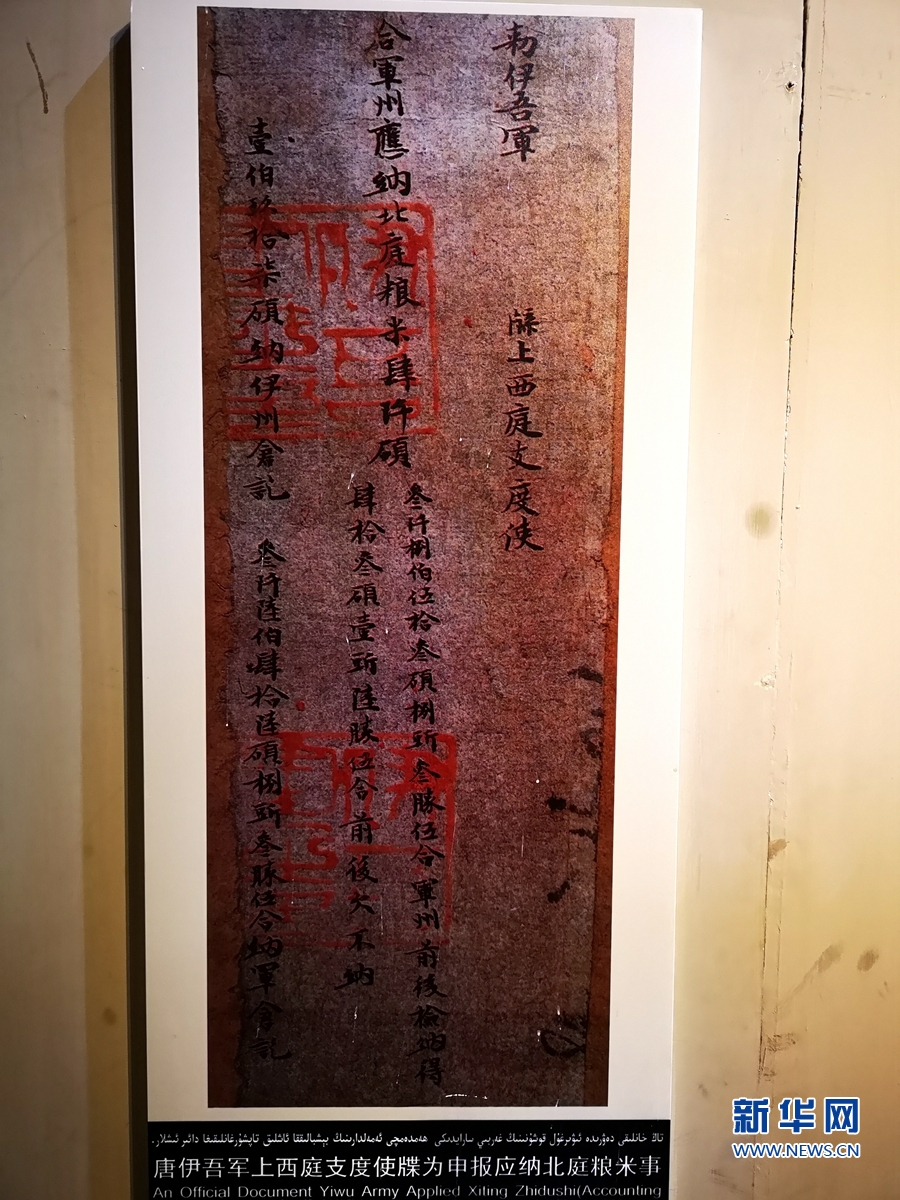 勑伊吾軍
牒上西庭支度使
合軍州應納北庭粮米肆阡碩
叁阡捌伯伍拾叁碩捌㪷叁勝伍合軍州前後檢納得
肆拾叁碩壹㪷陸勝伍合前後欠不納
壹伯玖拾柒碩納伊州倉訖
叁阡陸伯肆拾陸碩捌㪷叁勝伍合納軍倉訖
唐伊吾军上西庭支度使牒为申报应纳北庭粮米事
An Official Document Yiwu Army Applied Xiting Zhidushi(Accounting
新华网
WWW.NEWS.CN